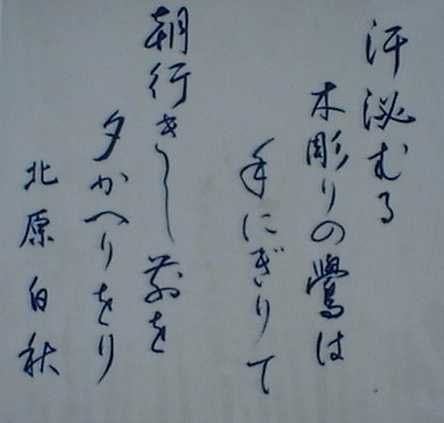 汗泌むる
木彫りの鷽は
手にぎりて
朝行きし前を
夕かへりをり
北原白秋